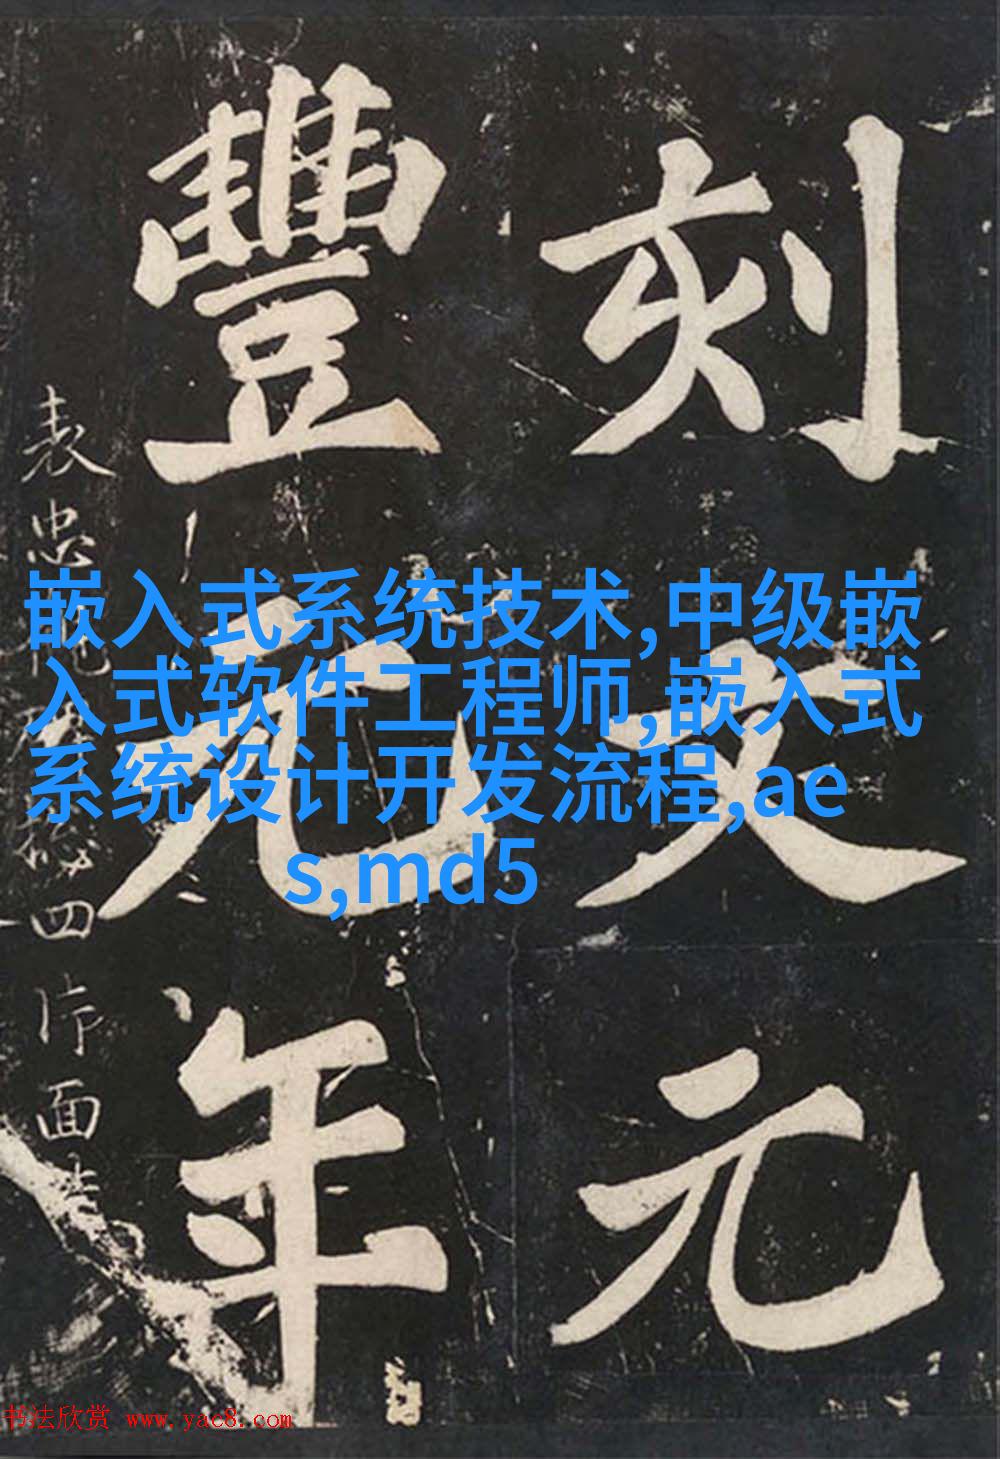 刻文元
豐元年
表忠四面
嵌入式系统技术,中级嵌
入式软件工程师,嵌入式
系统设计开发流程,ae
s,md5
书法欣赏 www.yac8.com